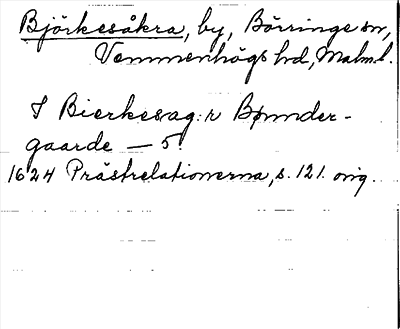 Björkesåkra, by, Börringe sn,
Vemmenhögs hd, Malm.l.
I Bierkesag:r Bønnder-
gaarde — 5.
1624 Prästrelationerna, s. 121. orig.